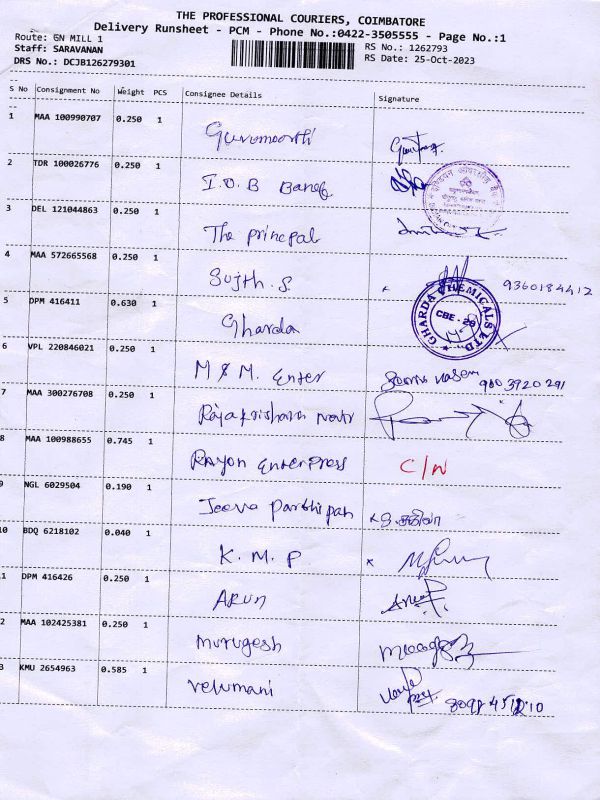 THE PROFESSIONAL COURIERS, COIMBATORE
Delivery Runsheet - PCM - Phone No.:0422-3505555 - Page No.:1
Route: GN MILL 1 RS No.: 1262793
Staff: SARAVANAN RS Date: 25-Oct-2023
DRS No.: DCJB126279301
S No Consignment No Weight PCS Consignee Details Signature
1 MAA 100990707 0.250 1 Gurumoorthi
2 TDR 100026776 0.250 1 I.O.B Bank
3 DEL 121044863 0.250 1 The principal
4 MAA 572665568 0.250 1 Sujth.S 9360184412
5 DPM 416411 0.630 1 Gharda GHARDA CHEMICALS LTD. CBE - 29
6 VPL 220846021 0.250 1 M & M. Enter 960 3920 291
7 MAA 300276708 0.250 1 Rajakrishnan
8 MAA 100988655 0.745 1 Rayon Enterpress C/N
9 NGL 6029504 0.190 1 Jeeva Parthipan
10 BDQ 6218102 0.040 1 K.M.P.
1 DPM 416426 0.250 1 ARUN
2 MAA 102425381 0.250 1 Murugesh
3 KMU 2654963 0.585 1 Velumani